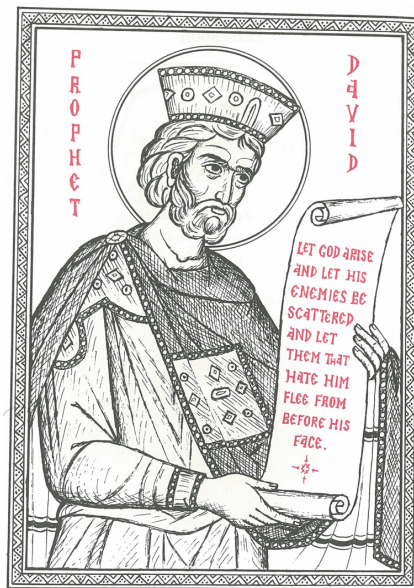 PROPHET
DAVID
LET GOD ARISE
AND LET HIS
ENEMIES BE
SCATTERED
AND LET
THEM THAT
HATE HIM
FLEE FROM
BEFORE HIS
FACE.